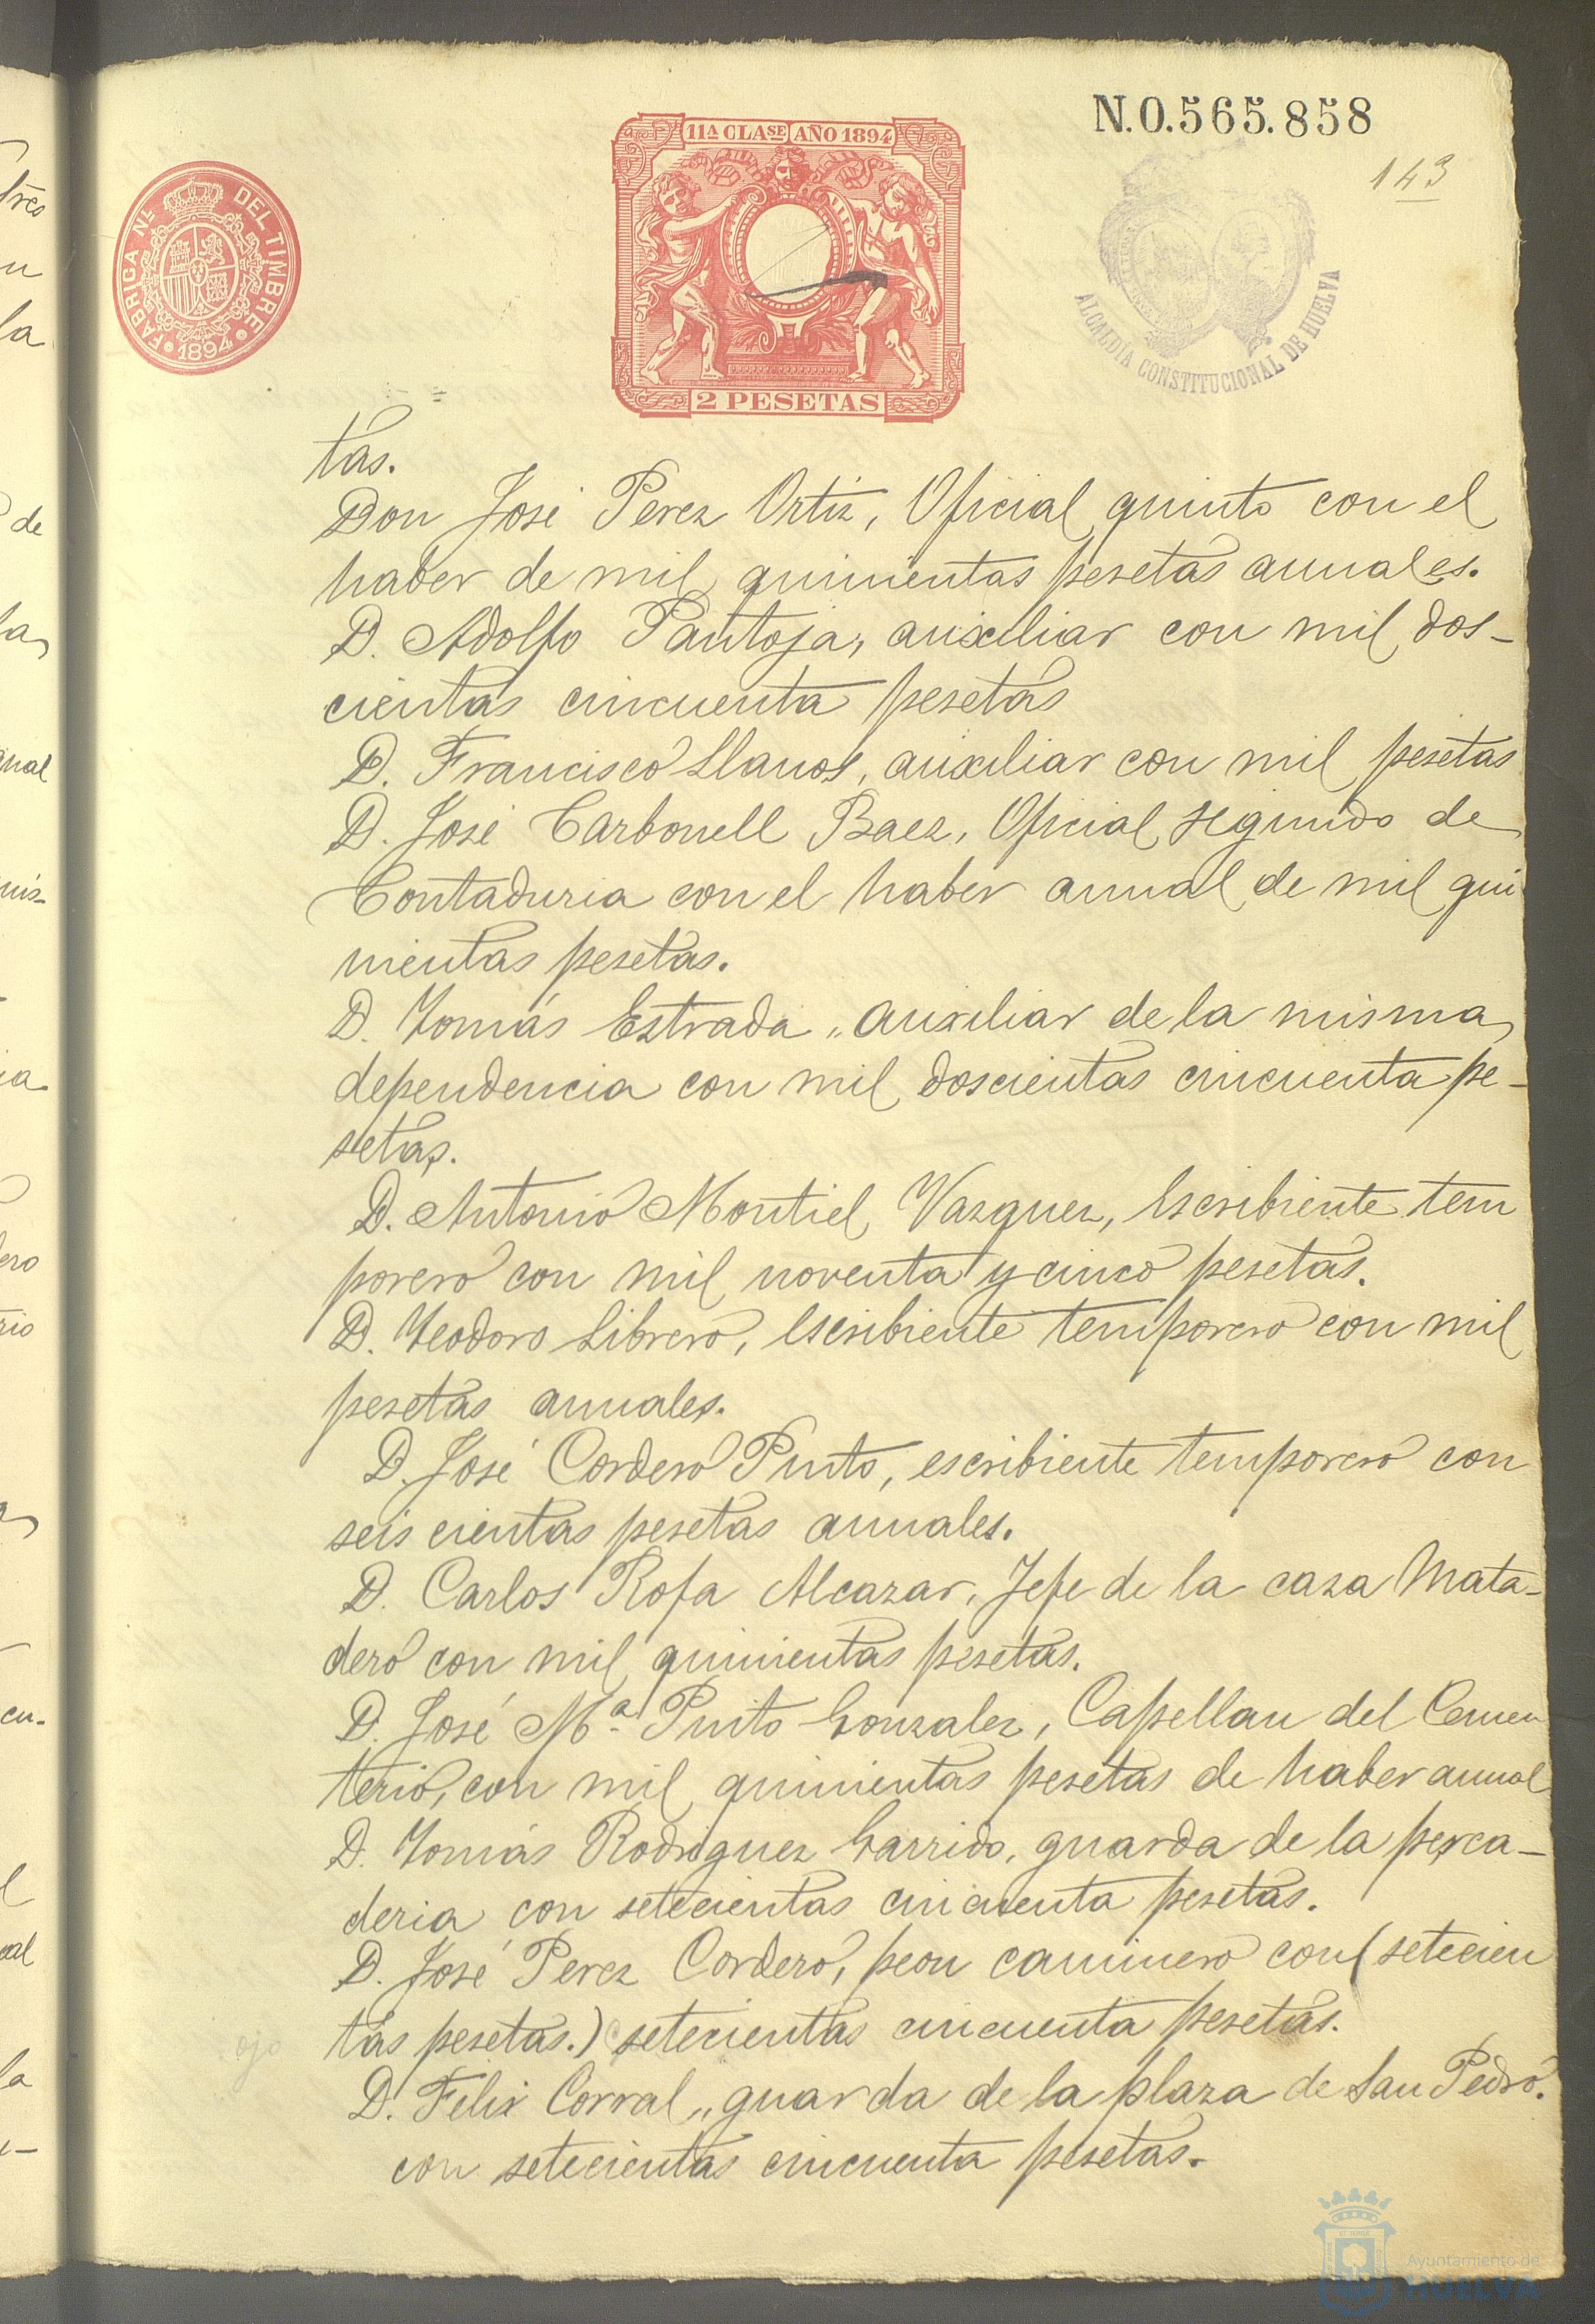 N.0.565.858
143
11A CLASE AÑO 1894
2 PESETAS
FABRICA NL DEL TIMBRE
1894
ALCALDÍA CONSTITUCIONAL DE HUELVA
tas.
Don José Perez Ortiz, Oficial quinto con el
haber de mil quinientas pesetas anuales.
D. Adolfo Pantoja, auxiliar con mil dos-
cientas cincuenta pesetas
D. Francisco Llanos, auxiliar con mil pesetas
D. José Carbonell Baez, Oficial segundo de
Contaduria con el haber anual de mil qui
nientas pesetas.
D. Tomás Estrada, auxiliar de la misma
dependencia con mil doscientas cincuenta pe-
setas.
D. Antonio Montiel Vazquez, Escribiente tem
porero con mil noventa y cinco pesetas.
D. Teodoro Librero, Escribiente temporero con mil
pesetas anuales.
D. José Cordero Pinto, escribiente temporero con
seis cientas pesetas anuales.
D. Carlos Rofa Alcazar, Jefe de la casa Mata-
dero con mil quinientas pesetas.
D. José Mª Pinto Gonzalez, Capellan del Cemen
terio, con mil quinientas pesetas de haber anual
D. Tomás Rodriguez Garrido, guarda de la pesca-
deria con setecientas cincuenta pesetas.
D. José Perez Cordero, peon caminero con (setecien
tas pesetas.) setecientas cincuenta pesetas.
ojo
D. Felix Corral, guarda de la plaza de San Pedro.
con setecientas cincuenta pesetas.
Ayuntamiento de
HUELVA